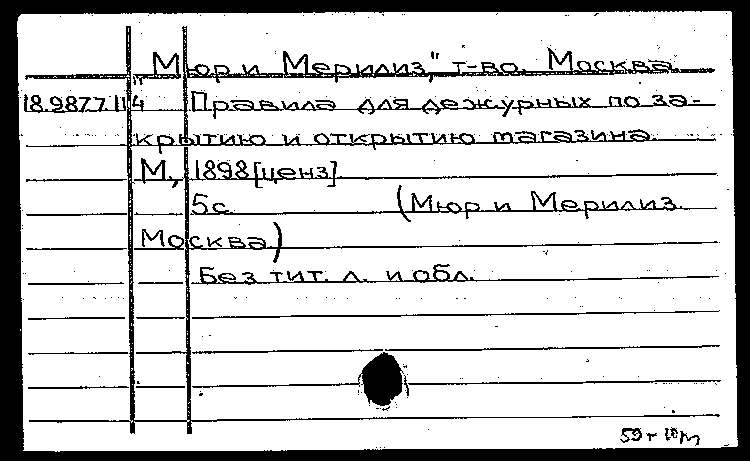 „Мюр и Мерилиз", т-во. Москва.
18.9877.114 Правила для дежурных по за-
крытию и открытию магазина.
М., 1898[ценз].
5с. (Мюр и Мерилиз.
Москва)
Без тит. л. и обл.